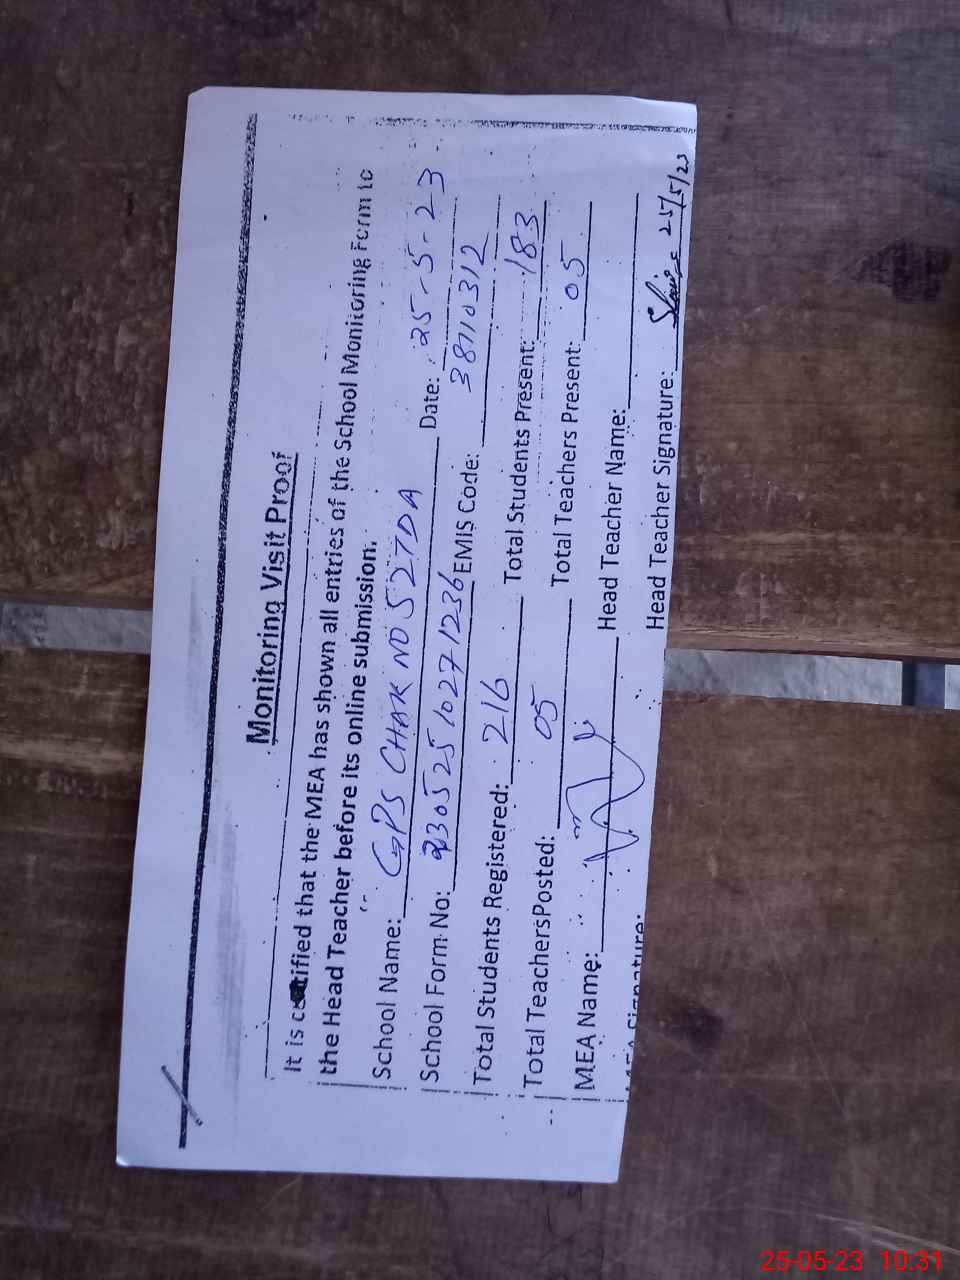 Monitoring Visit Proof
It is certified that the MEA has shown all entries of the School Monitoring Form to
the Head Teacher before its online submission.
School Name: GPS CHAK NO 52TDA Date: 25-5-23
School Form No: 23052510271236 EMIS Code: 38110312
Total Students Registered: 216 Total Students Present: 183
Total TeachersPosted: 05 Total Teachers Present: 05
MEA Name: Head Teacher Name:
MEA Signature: Head Teacher Signature: 25/5/23
25-05-23 10:31